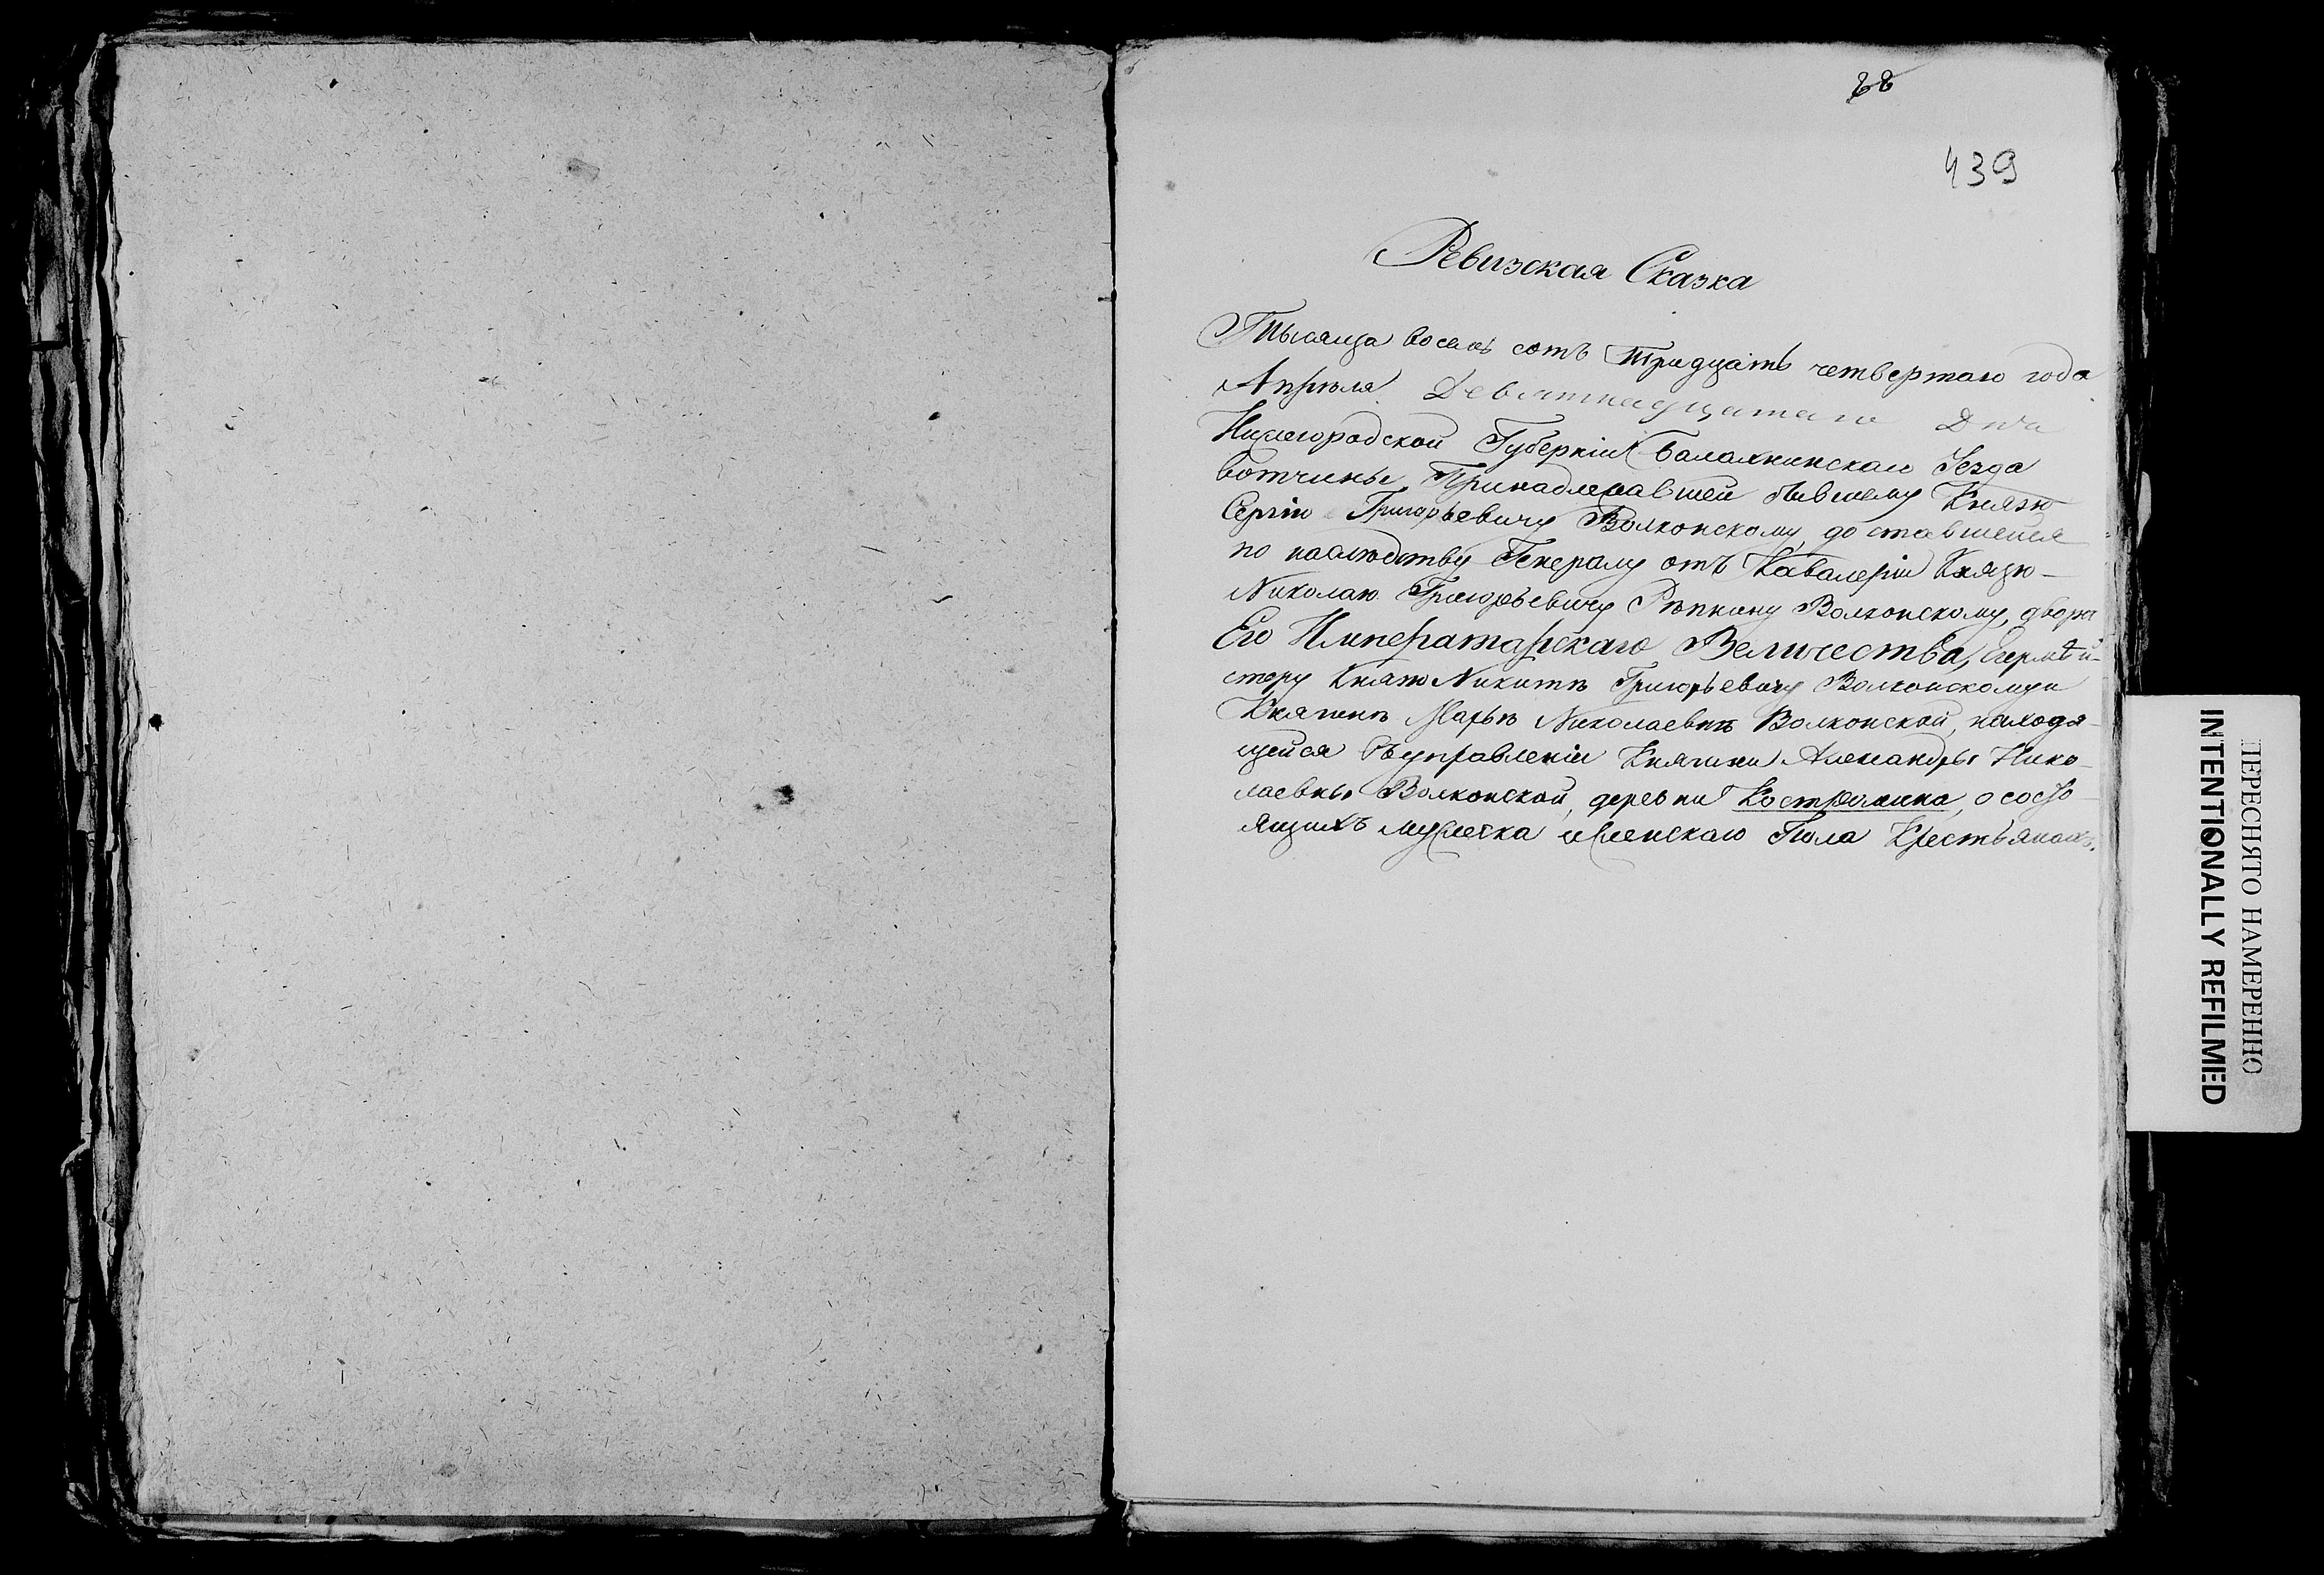 88
439
Ревизская Сказка
Тысяща восемь сотъ Тридцать четвертаго года
Апрѣля Девятнадцатаго Дня
Нижегородской Губерніи Балахнинскаго Уезда
вотчины Принадлежавшей бывшему Князю
Сергію Григорьевичу Волконскому, доставшейся
по наслѣдству Генералу отъ Кавалеріи Князю
Николаю Григорьевичу Рѣпнину Волконскому, двора
Его Императорскаго Величества, Егермѣй-
стеру Князю Никитѣ Григорьевичу Волконскому и
Княгинѣ Марьѣ Николаевнѣ Волконской, находя-
щейся въ управленіи Княгини Александры Нико-
лаевны Волконской, деревни Костромина, о состо-
ящихъ мужеска и женскаго Пола Крестьянахъ.
ПЕРЕСНЯТО НАМЕРЕННО
INTENTIONALLY REFILMED